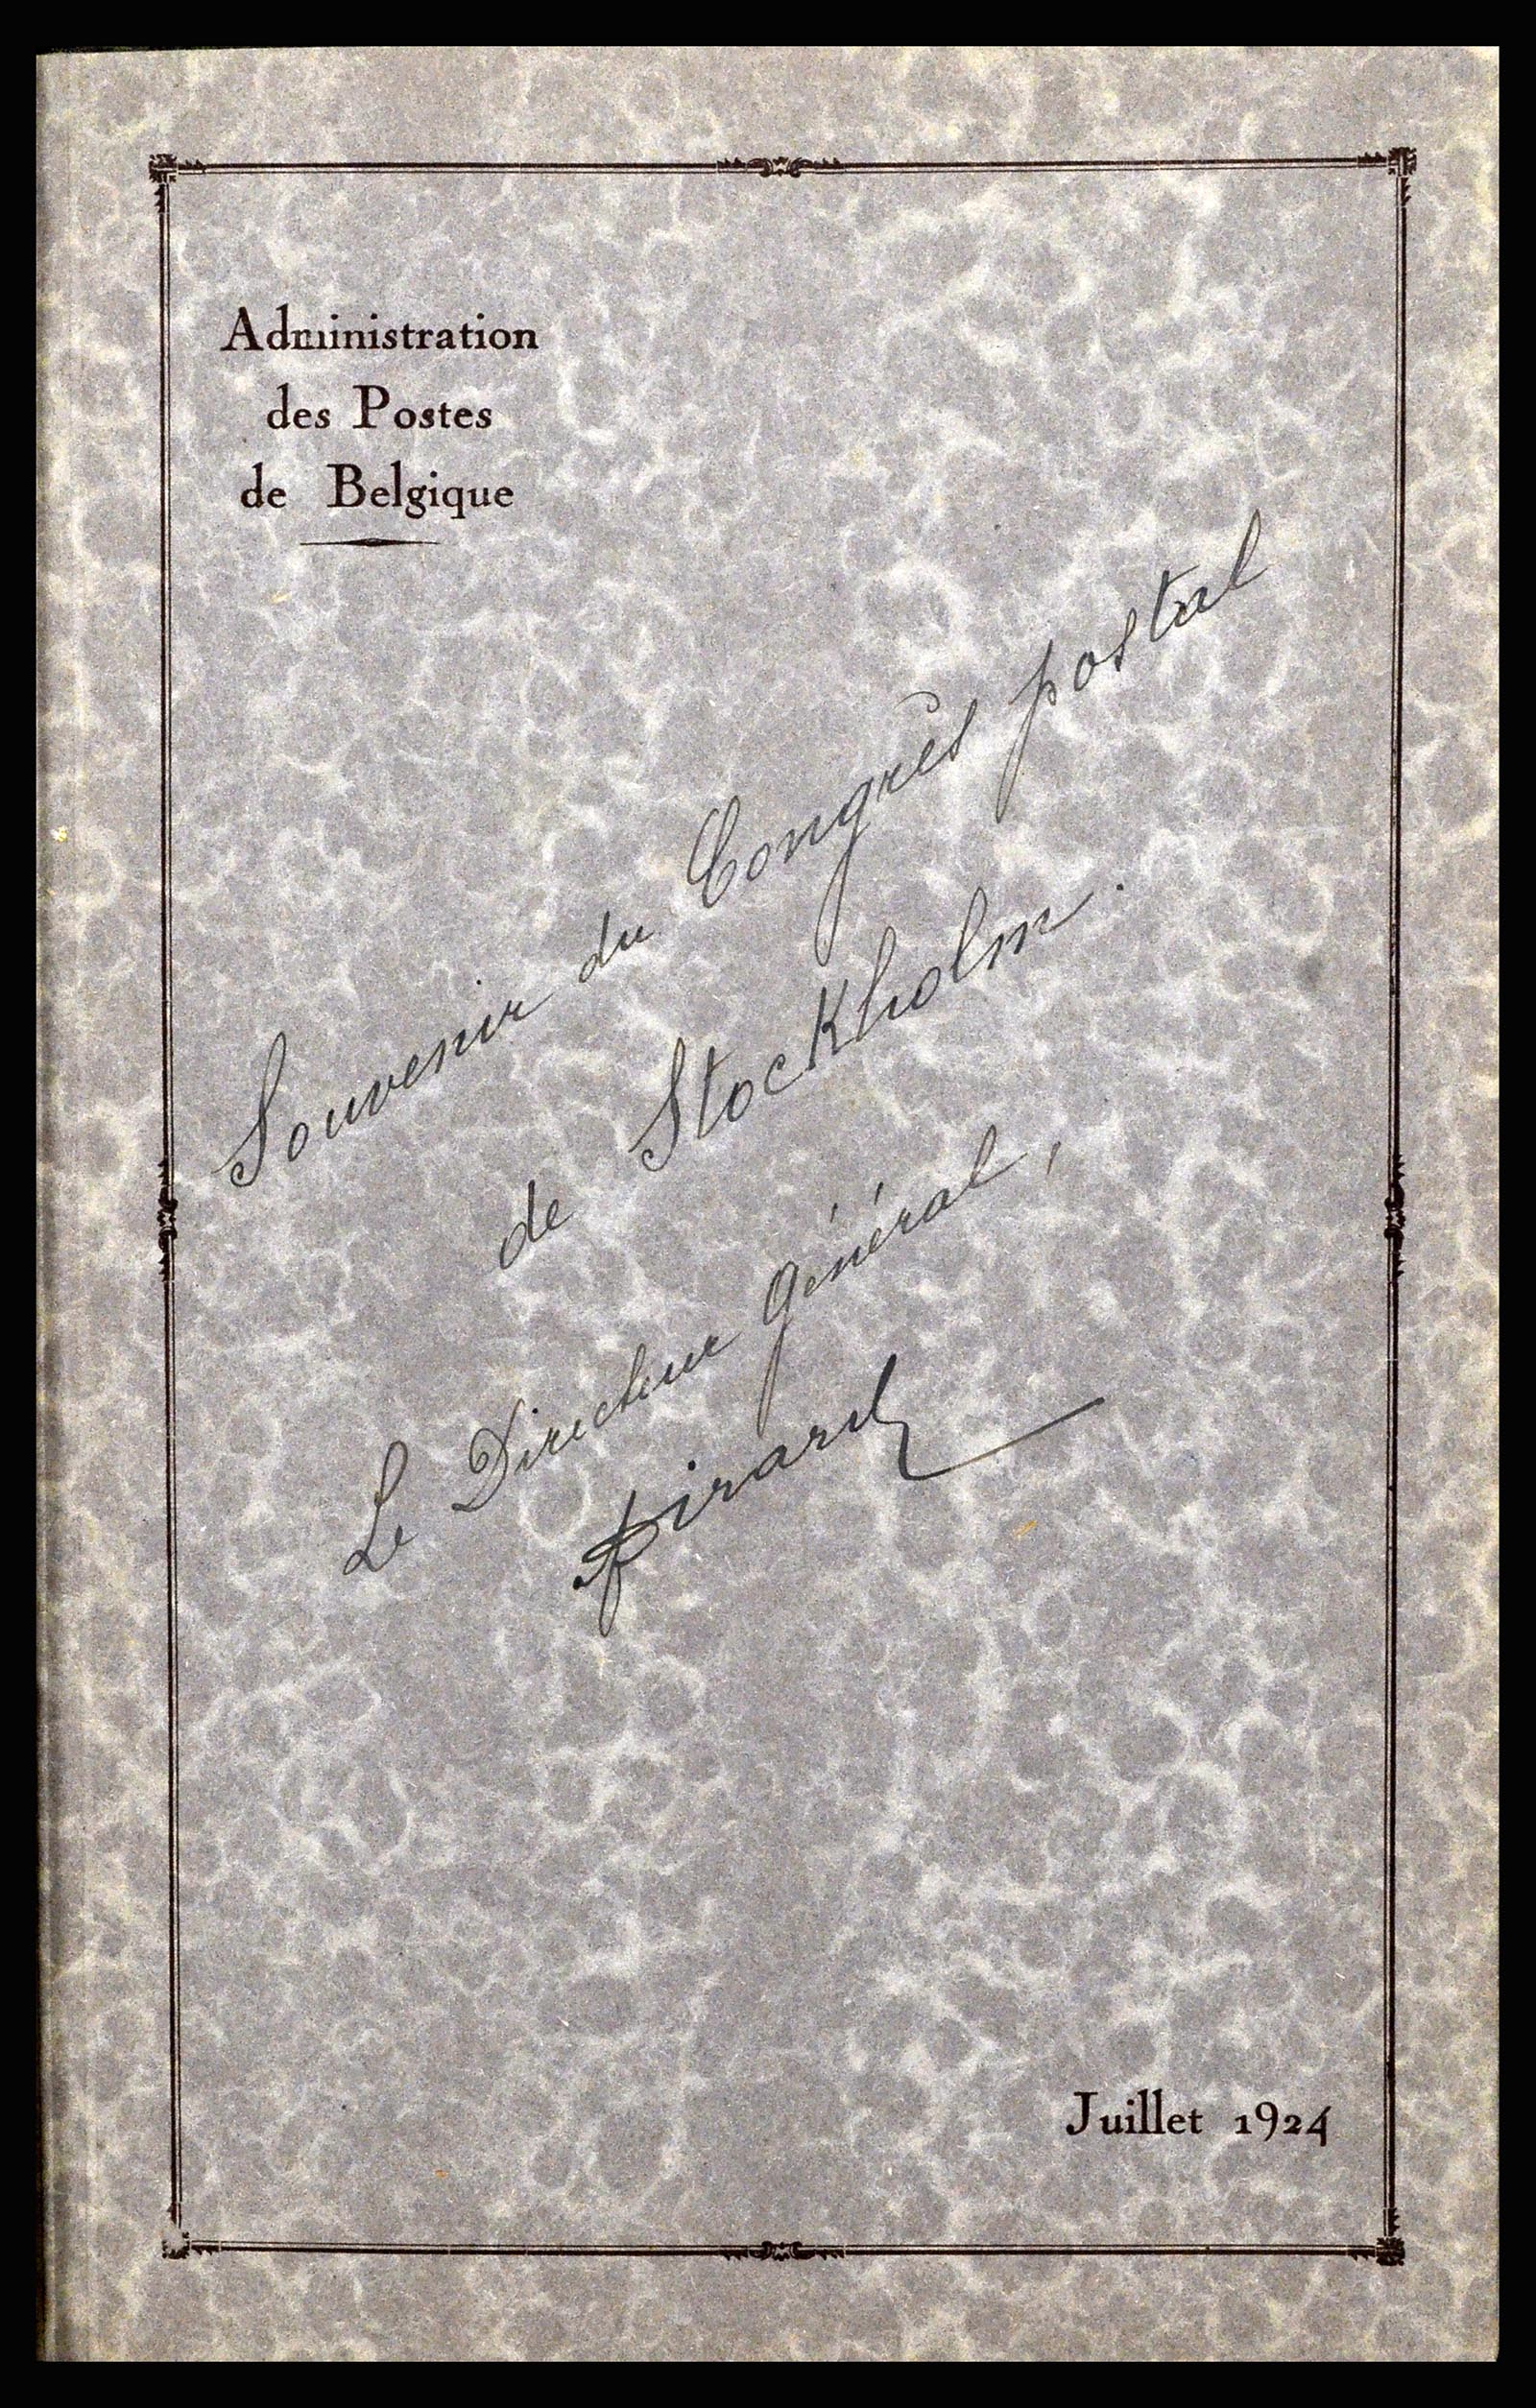 Administration
des Postes
de Belgique
Souvenir du Congrès postal
de Stockholm.
Le Directeur général,
Pirard
Juillet 1924